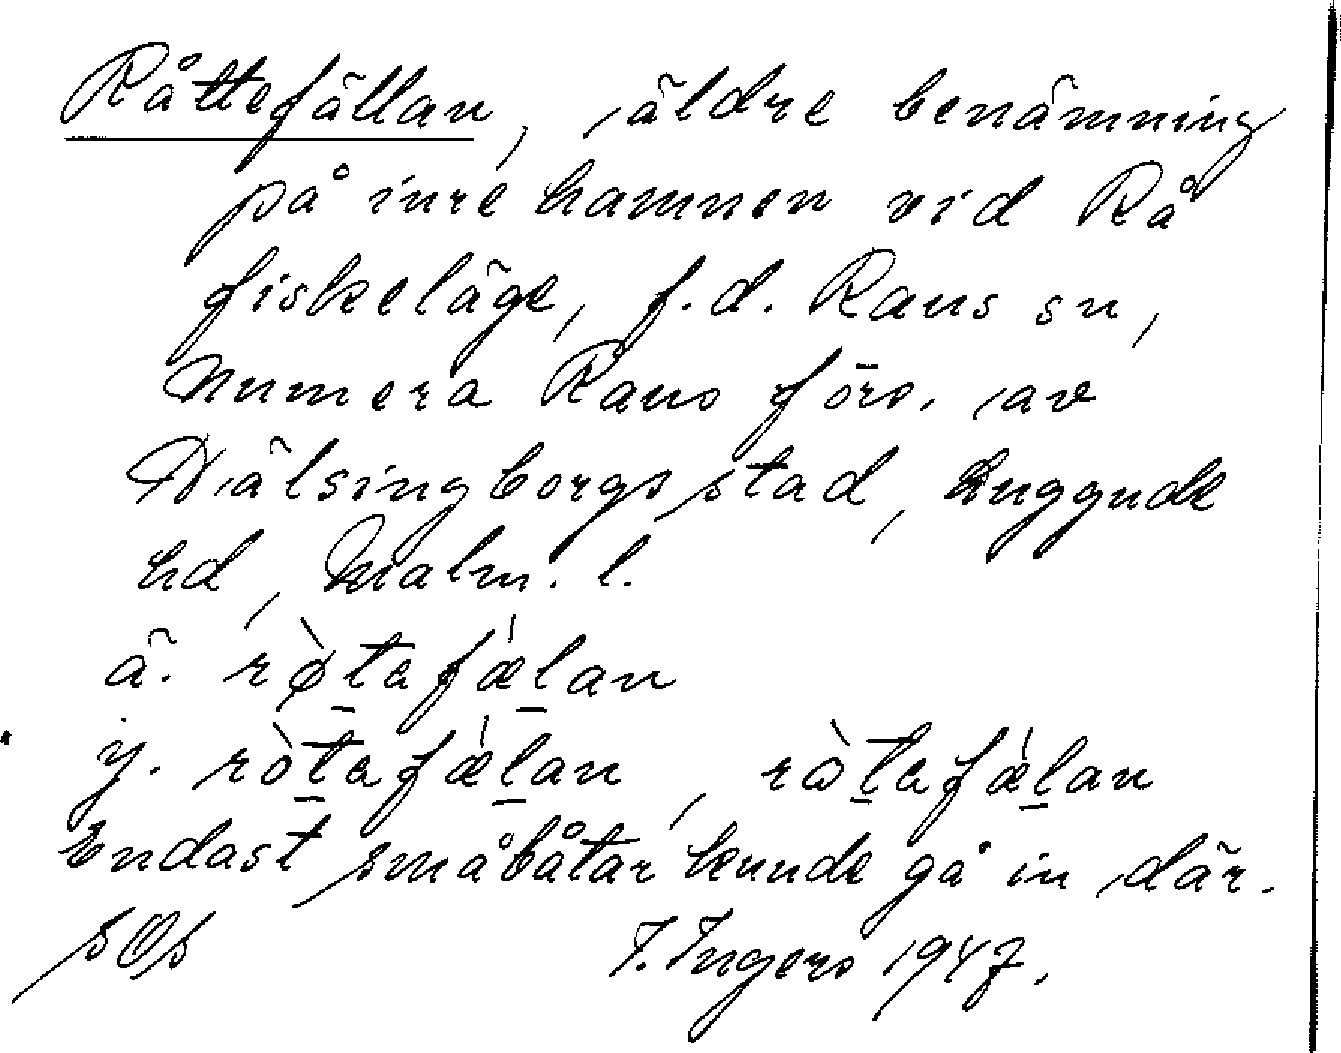 Råttefällan, äldre benämning
på inre hamnen vid Rå
fiskeläge, f.d. Raus sn,
numera Raus förs. av
Hälsingborgs stad, Luggude
hd, Malm. l.
ä. rø̀tafǽlan
y. ròtafǽlan, ròtafǽlan
Endast småbåtar kunde gå in där.
I. Ingers 1947.